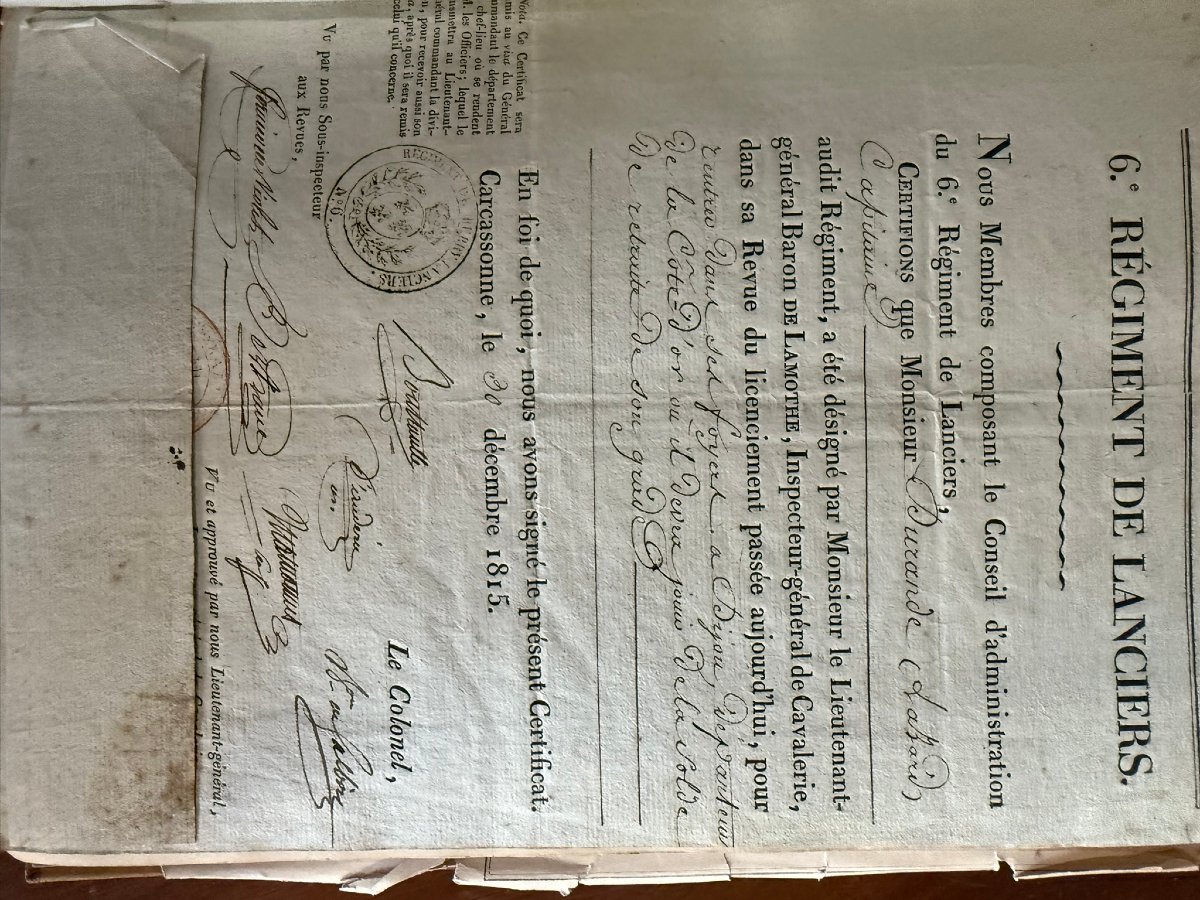 6.e RÉGIMENT DE LANCIERS.
Nous Membres composant le Conseil d'administration
du 6.e Régiment de Lanciers,
CERTIFIONS que Monsieur Durande (Lazare)
Capitaine
audit Régiment, a été désigné par Monsieur le Lieutenant-
général Baron DE LAMOTHE, Inspecteur-général de Cavalerie,
dans sa Revue du licenciement passée aujourd'hui, pour
rentrer dans ses foyers à Dijon, Département
De la Côte D'or où il Devra jouir De la solde
De retraite De son grade
En foi de quoi, nous avons signé le présent Certificat.
Carcassonne, le 30 décembre 1815.
Nota. Ce Certificat sera
mis au visa du Général
mmandant le département
chef-lieu où se rendent
M. les Officiers; lequel le
nsmettra au Lieutenant-
néral commandant la divi-
n, pour recevoir aussi son
a, après quoi il sera remis
celui qu'il concerne.
RÉGIMENT DE CHEV. LANCIERS.
N.º 6.
Le Colonel,
Vu par nous Sous-inspecteur
aux Revues,
Vu et approuvé par nous Lieutenant-général,